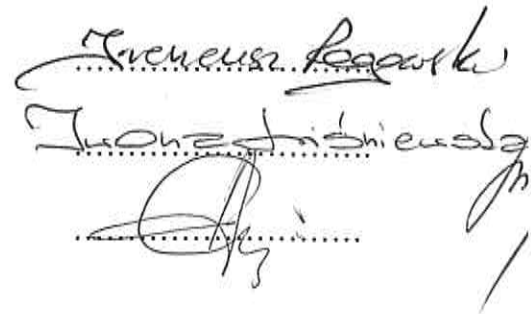 Ireneusz Rogowski
Iwona Wiśniewska